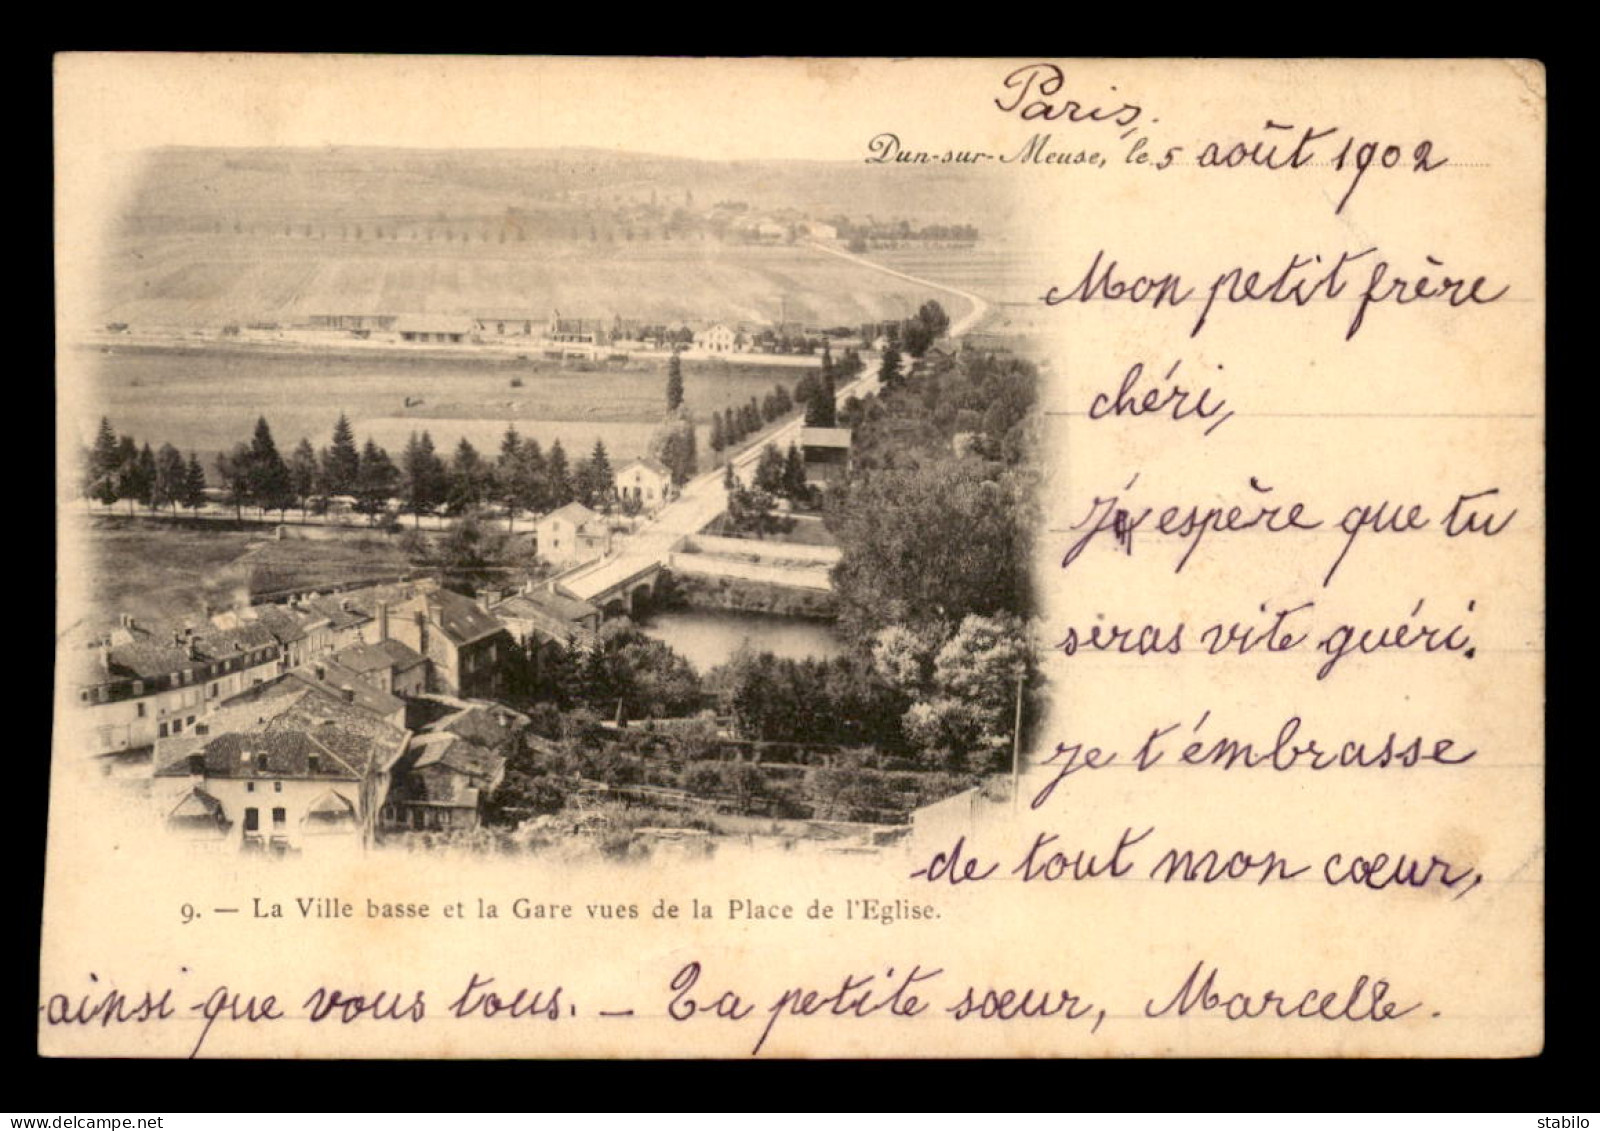 Paris,
Dun-sur-Meuse, le 5 août 1902
Mon petit frère
chéri,
J'espère que tu
seras vite guéri.
Je t'émbrasse
de tout mon cœur,
9. — La Ville basse et la Gare vues de la Place de l'Eglise.
ainsi que vous tous. — Ta petite sœur, Marcelle.
www.delcampe.net
stabilo